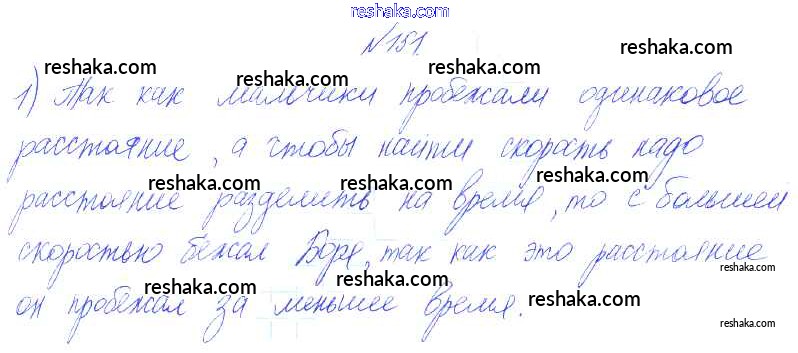 reshaka.com
№151.
reshaka.com reshaka.com
reshaka.com reshaka.com
1) Так как мальчики пробежали одинаковое
reshaka.com
расстояние, а чтобы найти скорость надо
reshaka.com reshaka.com reshaka.com
расстояние разделить на время, то с большей
reshaka.com reshaka.com
скоростью бежал Боря, так как это расстояние
reshaka.com
reshaka.com reshaka.com reshaka.com
он пробежал за меньшее время.
reshaka.com